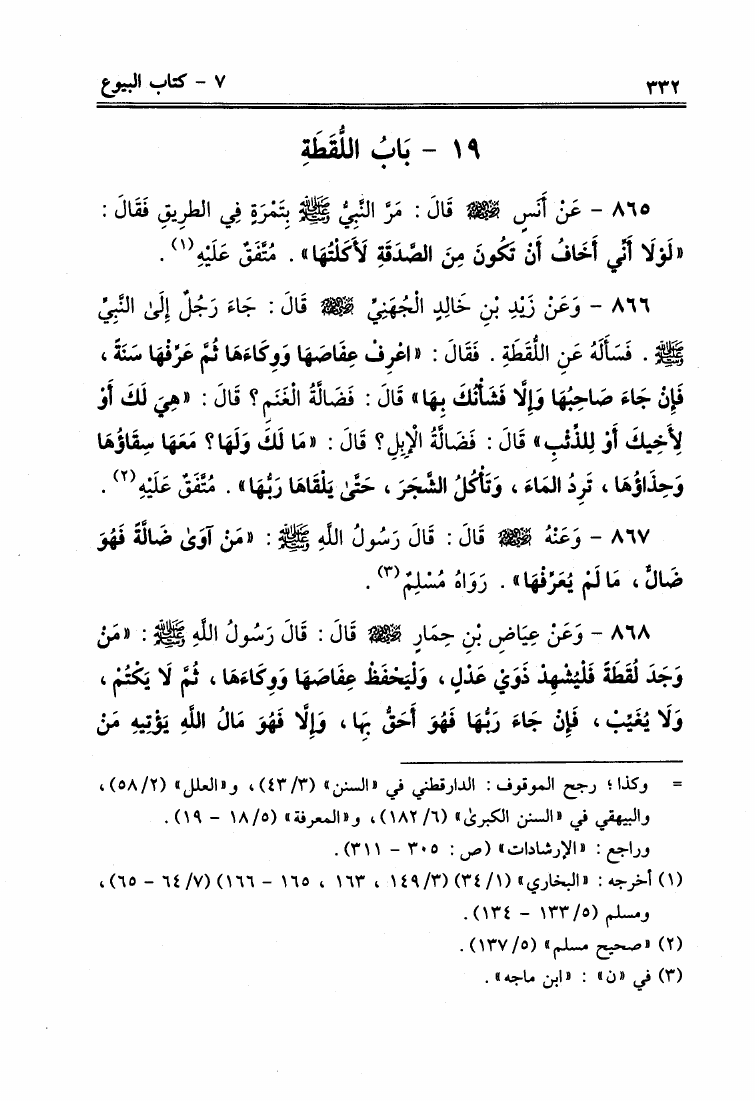 ٣٣٢ ٧ - كتاب البيوع
١٩ - بَابُ اللُّقَطَةِ
٨٦٥ - عَنْ أَنَسٍ رضي الله عنه قَالَ : مَرَّ النَّبِيُّ ﷺ بِتَمْرَةٍ فِي الطرِيقِ فَقَالَ :
«لَوْلَا أَنِّي أَخَافُ أَنْ تَكُونَ مِنَ الصَّدَقَةِ لَأَكَلْتُهَا» . مُتَّفَقٌ عَلَيْهِ(١) .
٨٦٦ - وَعَنْ زَيْدِ بْنِ خَالِدٍ الْجُهَنِيِّ رضي الله عنه قَالَ : جَاءَ رَجُلٌ إِلَى النَّبِيِّ
ﷺ . فَسَأَلَهُ عَنِ اللُّقَطَةِ . فَقَالَ : «اعْرِفْ عِفَاصَهَا وَوِكَاءَهَا ثُمَّ عَرِّفْهَا سَنَةً ،
فَإِنْ جَاءَ صَاحِبُهَا وَإِلَّا فَشَأْنُكَ بِهَا» قَالَ : فَضَالَّةُ الْغَنَمِ ؟ قَالَ : «هِيَ لَكَ أَوْ
لِأَخِيكَ أَوْ لِلذِّئْبِ» قَالَ : فَضَالَّةُ الْإِبِلِ ؟ قَالَ : «مَا لَكَ وَلَهَا ؟ مَعَهَا سِقَاؤُهَا
وَحِذَاؤُهَا ، تَرِدُ المَاءَ ، وَتَأْكُلُ الشَّجَرَ ، حَتَّىٰ يَلْقَاهَا رَبُّهَا» . مُتَّفَقٌ عَلَيْهِ(٢) .
٨٦٧ - وَعَنْهُ رضي الله عنه قَالَ : قَالَ رَسُولُ اللَّهِ ﷺ : «مَنْ آوَىٰ ضَالَّةً فَهُوَ
ضَالٌّ ، مَا لَمْ يُعَرِّفْهَا» . رَوَاهُ مُسْلِمٌ(٣) .
٨٦٨ - وَعَنْ عِيَاضِ بْنِ حِمَارٍ رضي الله عنه قَالَ : قَالَ رَسُولُ اللَّهِ ﷺ : «مَنْ
وَجَدَ لُقَطَةً فَلْيُشْهِدْ ذَوَيْ عَدْلٍ ، وَلْيَحْفَظْ عِفَاصَهَا وَوِكَاءَهَا ، ثُمَّ لَا يَكْتُمْ ،
وَلَا يُغَيِّبْ ، فَإِنْ جَاءَ رَبُّهَا فَهُوَ أَحَقُّ بِهَا ، وَإِلَّا فَهُوَ مَالُ اللَّهِ يُؤْتِيهِ مَنْ
= وكذا ؛ رجح الموقوف : الدارقطني في «السنن» (٤٣/٣) ، و«العلل» (٥٨/٢) ،
والبيهقي في «السنن الكبرىٰ» (١٨٢/٦) ، و«المعرفة» (١٨/٥ - ١٩) .
وراجع : «الإرشادات» (ص : ٣٠٥ - ٣١١) .
(١) أخرجه : «البخاري» (٣٤/١) (١٤٩/٣ ، ١٦٣ ، ١٦٥ - ١٦٦) (٦٤/٧ - ٦٥) ،
ومسلم (١٣٣/٥ - ١٣٤) .
(٢) «صحيح مسلم» (١٣٧/٥) .
(٣) في «ن» : «ابن ماجه» .